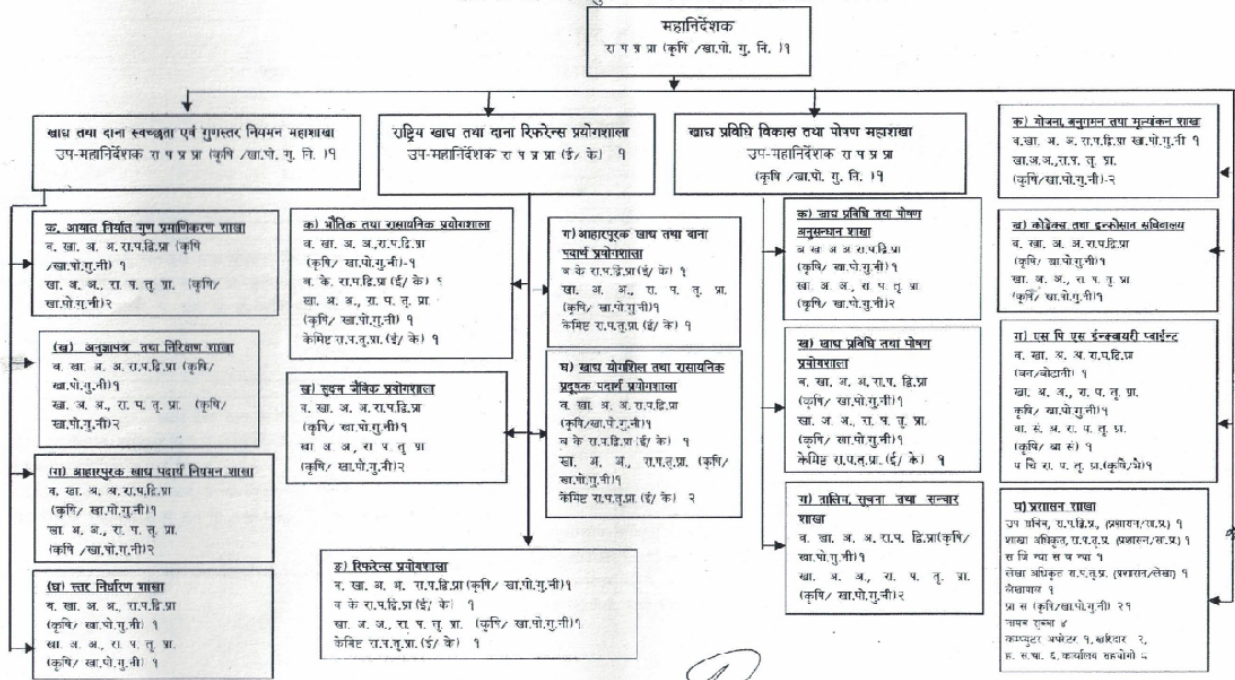 महानिर्देशक
रा प प्र प्रा (कृषि /खा.पो. गु. नि. )१
खाद्य तथा दाना स्वच्छता एवं गुणस्तर नियमन महाशाखा
उप-महानिर्देशक रा प प्र प्रा (कृषि /खा.पो. गु. नि. )१
क. आयात निर्यात गुण प्रमाणिकरण शाखा
व. खा. अ. अ. रा.प.द्वि.प्रा (कृषि
/खा.पो.गु.नी) १
खा. अ. अ., रा. प. तृ. प्रा. (कृषि/
खा.पो.गु.नी)२
(ख) अनुज्ञापत्र तथा निरिक्षण शाखा
व. खा. अ. अ. रा.प.द्वि.प्रा (कृषि/
खा.पो.गु.नी)१
खा. अ. अ., रा. प. तृ. प्रा. (कृषि/
खा.पो.गु.नी)२
(ग) आहारपुरक खाद्य पदार्थ नियमन शाखा
व. खा. अ. अ. रा.प.द्वि.प्रा
(कृषि/ खा.पो.गु.नी)१
खा. अ. अ., रा. प. तृ. प्रा.
(कृषि /खा.पो.गु.नी)२
(घ) स्तर निर्धारण शाखा
व. खा. अ. अ., रा.प.द्वि.प्रा
(कृषि/ खा.पो.गु.नी) १
खा. अ. अ., रा. प. तृ. प्रा.
(कृषि/ खा.पो.गु.नी) १
राष्ट्रिय खाद्य तथा दाना रिफरेन्स प्रयोगशाला
उप-महानिर्देशक रा प प्र प्रा (ई/ के) १
क) भौतिक तथा रासायनिक प्रयोगशाला
व. खा. अ. अ.रा.प.द्वि.प्रा
(कृषि/ खा.पो.गु.नी)-१
व. के. रा.प.द्वि.प्रा (ई/ के) १
खा. अ. अ., रा. प. तृ. प्रा.
(कृषि/ खा.पो.गु.नी) १
केमिष्ट रा.प.तृ.प्रा. (ई/ के) १
ख) सुक्ष्म जैविक प्रयोगशाला
व. खा. अ. अ.रा.प.द्वि.प्रा
(कृषि/ खा.पो.गु.नी)१
खा अ अ, रा प तृ प्रा
(कृषि/ खा.पो.गु.नी)२
ग) आहारपूरक खाद्य तथा दाना
पदार्थ प्रयोगशाला
व के रा.प.द्वि.प्रा (ई/ के) १
खा. अ. अ., रा. प. तृ. प्रा.
(कृषि/ खा.पो.गु.नी)१
केमिष्ट रा.प.तृ.प्रा. (ई/ के) १
घ) खाद्य योगशिल तथा रासायनिक
प्रदूषक पदार्थ प्रयोगशाला
व. खा. अ. अ. रा.प.द्वि.प्रा
(कृषि/खा.पो.गु.नी)१
व के रा.प.द्वि.प्रा (ई/ के) १
खा. अ. अ., रा.प.तृ.प्रा. (कृषि/
खा.पो.गु.नी)१
केमिष्ट रा.प.तृ.प्रा. (ई/ के) २
ङ) रिफरेन्स प्रयोगशाला
व. खा. अ. अ. रा.प.द्वि.प्रा (कृषि/ खा.पो.गु.नी)१
व के रा.प.द्वि.प्रा (ई/ के) १
खा. अ. अ., रा. प. तृ. प्रा. (कृषि/ खा.पो.गु.नी)१
केमिष्ट रा.प.तृ.प्रा. (ई/ के) १
खाद्य प्रविधि विकास तथा पोषण महाशखा
उप-महानिर्देशक रा प प्र प्रा
(कृषि /खा.पो. गु. नि. )१
क) खाद्य प्रविधि तथा पोषण
अनुसन्धान शाखा
व खा अ अ रा.प.द्वि.प्रा
(कृषि/ खा.पो.गु.नी)१
खा. अ. अ., रा. प. तृ. प्रा
(कृषि/ खा.पो.गु.नी)२
ख) खाद्य प्रविधि तथा पोषण
प्रयोगशाला
व. खा. अ. अ.रा.प. द्वि.प्रा
(कृषि/ खा.पो.गु.नी)१
खा. अ. अ., रा. प. तृ. प्रा.
(कृषि/ खा.पो.गु.नी)१
केमिष्ट रा.प.तृ.प्रा. (ई/ के) १
ग) तालिम, सूचना तथा सन्चार
शाखा
व. खा. अ. अ.रा.प. द्वि.प्रा(कृषि/
खा.पो.गु.नी)१
खा. अ. अ., रा. प. तृ. प्रा.
(कृषि/ खा.पो.गु.नी)२
क) योजना, अनुगमन तथा मूल्यांकन शाखा
व.खा. अ. अ. रा.प.द्वि.प्रा खा.पो.गु.नी १
खा.अ.अ.,रा.प. तृ. प्रा.
(कृषि/खा.पो.गु.नी)-२
ख) कोडेक्स तथा इन्फोसान सचिवालय
व. खा. अ. अ. रा.प.द्वि.प्रा
(कृषि/ खा.पो.गु.नी)१
खा. अ. अ., रा. प. तृ. प्रा
(कृषि/ खा.पो.गु.नी)१
ग) एस पि एस ईन्क्वायरी प्वाईन्ट
व. खा. अ. अ. रा.प.द्वि.प्रा
(वन/बोटानी) १
खा. अ. अ., रा. प. तृ. प्रा.
कृषि/ खा.पो.गु.नी)१
वा. सं. अ. रा. प. तृ. प्रा.
(कृषि/ बा सं) १
प चि रा. प. तृ. प्रा.(कृषि/भे)१
घ) प्रशासन शाखा
उप सचिव, रा.प.द्वि.प्र., (प्रशासन/सा.प्र.) १
शाखा अधिकृत, रा.प.तृ.प्र. (प्रशासन/सा.प्र.) १
लेखा अधिकृत रा.प.तृ.प्र. (प्रशासन/लेखा) १
लेखापाल १
प्रा स (कृषि/खा.पो.गु.नी) २१
नायब सुब्बा ४
कम्प्युटर अपरेटर १, खरिदार २,
ह. स.चा. ६, कार्यालय सहयोगी